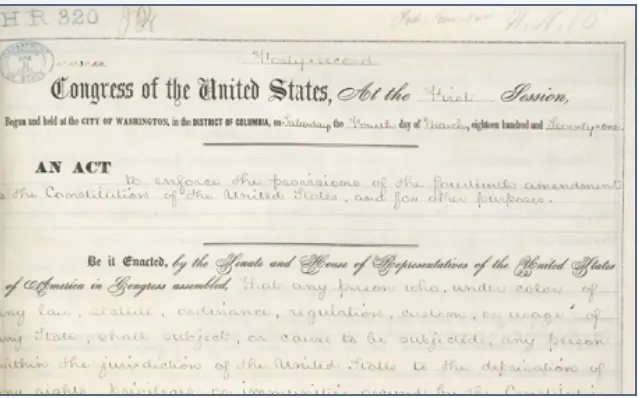 H R 320
Forty-second
Congress of the United States, At the First Session,
Begun and held at the CITY OF WASHINGTON, in the DISTRICT OF COLUMBIA, on Saturday, the Fourth day of March, eighteen hundred and Seventy-one
AN ACT to enforce the provisions of the fourteenth amendment
the Constitution of the United States, and for other purposes.
Be it Enacted, by the Senate and House of Representatives of the United States
of America in Congress assembled, That any person who, under color of
any law, statute, ordinance, regulation, custom, or usage of
any State, shall subject, or cause to be subjected, any person
within the jurisdiction of the United States to the deprivation of
any rights, privileges, or immunities secured by the Constitu